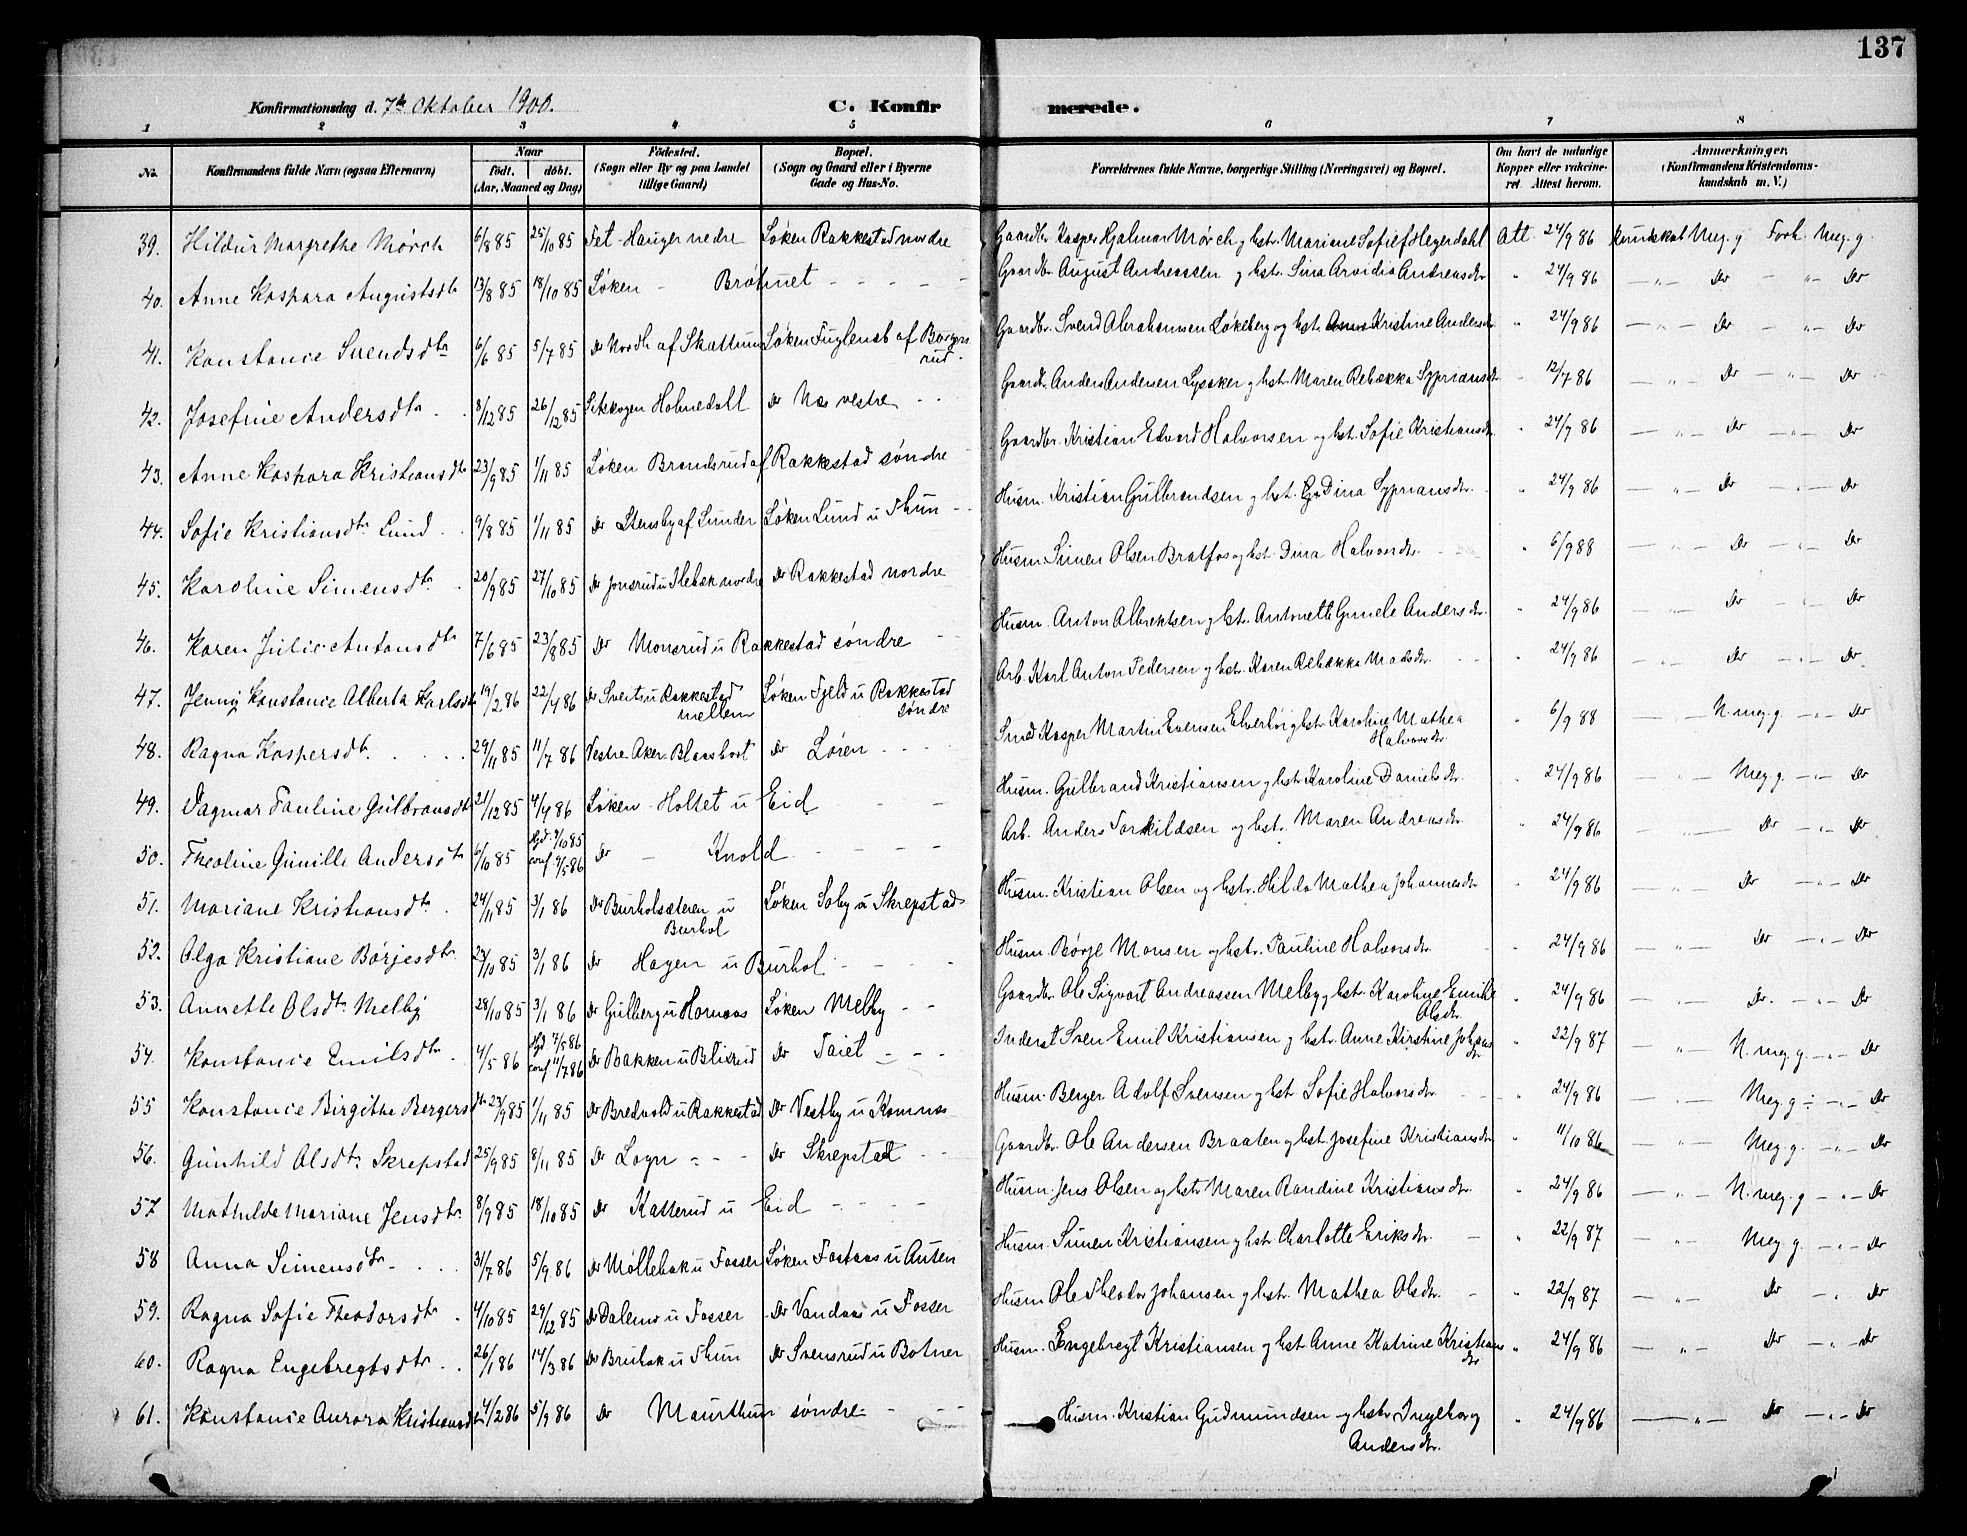 137
Konfirmationsdag d. 7de Oktober 1900.
C. Konfirmerede.
1 2 3 4 5 6 7 8
No.
Konfirmandens fulde Navn (ogsaa Efternavn)
Naar
født. døbt.
(Aar, Maaned og Dag)
Fødested.
(Sogn eller By og paa Landet
tillige Gaard)
Bopæl.
(Sogn og Gaard eller i Byerne
Gade og Hus-No.
Forældrenes fulde Navne, borgerlige Stilling (Næringsvei) og Bopæl.
Om havt de naturlige
Kopper eller vakcine-
ret. Attest herom.
Anmærkninger,
(Konfirmandens Kristendoms-
kundskab m. V.)
39. Hildur Margrethe Mørch 6/8 85 25/10 85 Fet - Hauger nedre Løken Rakkestad nordre Gaardbr. Kasper Hjalmar Mørch og hst. Mariane Sofie f Hegerdahl Att. 24/9 86 Kundskab Meg. g. Forh. Meg. g.
40. Anne Kaspara Augustsdtr 13/8 85 18/10 85 Løken - Brøtnuet - - - Gaardbr. August Andreassen og hst. Sina Arvidia Andreasdr. " 24/9 86 - " - Do - " - Do
41. Konstance Svendsdtr 6/6 85 5/7 85 Do Nordh. af Skattum Løken Fuglenab af Borgersrud. Gaardbr. Svend Abrahamsen Løkeberg og hst. Kristine Andersdr. " 24/9 86 - " - Do - " - Do
42. Josefine Andersdtr. 8/12 85 26/12 85 Setskogen Holmedall Do Næs vestre Gaardbr. Anders Andersen Lysaker og hst. Maren Rebækka Syprians dr. " 12/7 86 " Do " Do
43. Anne Kaspara Kristiansdtr 23/9 85 1/11 85 Løken Brandsrud af Rakkestad søndre Gaardbr. Kristian Edvard Halvorsen og hst. Sofie Kristiansdr. " 24/9 86 - " - Do - " - Do
44. Sofie Kristiansdtr Lund 9/8 85 1/11 85 Do Stensby af Sunder Løken Lund u Thun Husm. Kristian Gulbrandsen og hst. Dina Sypriansdr. " 24/9 86 - " - Do - " - Do
45. Karoline Simensdtr. 20/9 85 27/10 85 Do Jonsrud u Slebæk nordre Do Rakkestad nordre Husm. Simen Olsen Bratfos og hst. Dina Halvorsdr. " 6/9 88 - " - Do - " - Do
46. Karen Julie Antonsdtr 7/6 85 23/8 85 Do Monsrud u Rakkestad søndre Husm. Anton Albrektsen og hst. Antonette Gunele Andersdr. " 24/9 86 " Do - " - Do
47. Jenny Konstance Alberta Karlsdtr 19/2 86 22/4 86 Do Sveits u Rakkestad mellem Løken Fjeld u Rakkestad søndre Arb. Karl Anton Pedersen og hst. Karen Rebækka Madsdr. " 24/9 86 " Do - " - Do
48. Ragna Kaspersdtr. 29/11 85 11/7 86 Vestre Aker Do Løren Smed Kasper Martin Evensen Elverhøi og hst. Karoline Mathea Halvorsdr. " 6/9 88 N. meg. g. - " - Do
49. Dagmar Pauline Gulbransdtr 21/12 85 4/4 86 Løken - Holtet u Eid Husm. Gulbrand Kristiansen og hst. Karoline Danielsdr. " 24/9 86 " Meg. g. - " - Do
50. Theoline Gunille Andersdtr 6/10 85 Hjd. 7/10 85 conf 9/5 86 Do - Knold - - - Arb. Anders Torkildsen og hst. Maren Andreasdr. " 24/9 86 - " - Do - " - Do
51. Mariane Kristiansdtr. 24/11 85 3/1 86 Do Burholsæteren u Burhol Løken Soby u Skrepstad Husm. Kristian Olsen og hst. Hilda Mathea Johannesdr " 24/9 86 - " - Do - " - Do
52. Olga Kristiane Børjesdtr 23/10 85 3/1 86 Do Hagen u Burhol - - - Husm. Børge Monsen og hst. Pauline Halvorsdr. " 24/9 86 " Do - " - Do
53. Annette Olsdtr Melby 28/10 85 3/1 86 Do Gulberg u Hornaas Løken Melby - - Gaardbr. Ole Sigvart Andreassen Melby og hst. Karoline Emilie Olsdr. " 24/9 86 - " - Do. - " - Do
54. Konstance Emilsdtr. 4/5 86 Hjd 7/5 86 conf 11/7 86 Do Bakken u Blixrud Do Taiet - - - Inderst Sven Emil Kristiansen og hst. Anne Kirstine Johansdr " 22/9 87 " N. meg. g. - " - Do
55 Konstance Birgithe Bergersdtr 23/9 85 1/11 85 Do Bredvold u Rakkestad Do Vestby u Komnæs Husm. Berger Adolf Svensen og hst. Sofie Halvorsdr " 24/9 86 " Meg. g. - " - Do
56. Gunhild Olsdtr. Skrepstad 25/9 85 8/11 85 Do Logn - - - Do Skrepstad Gaardbr. Ole Andersen Braaten og hst. Josefine Kristiansdr " 11/10 86 " Meg. g. - " - Do
57 Mathilde Mariane Jensdtr. 8/9 85 18/10 85 Do Katterud u Eid Husm. Jens Olsen og hst. Maren Randine Kristiansdr. " 24/9 86 - " - N. meg. g - " - Do
58 Anna Simensdtr - 31/7 86 5/9 86 Do Møllebak u Fosser Løken Fostaas u Auten Husm. Simen Kristiansen og hst. Charlotte Eriksdr. " 22/9 87 - " - Meg. g. - " - Do
59. Ragna Sofie Theodorsdtr 4/10 85 29/12 85 Do Dalemo u Fosser Do Vandaas u Fosser Husm Ole Theodor Johansen og hst. Mathea Olsdr. " 22/9 87 - " - Do - " - Do
60. Ragna Engebregtsdtr 26/1 86 14/3 86 Do Brubak u Thun Do Svensrud u Botner Husm. Engebregt Kristiansen og hst Anne Katrine Kristiansdr " 24/9 86 - " - Do - " - Do
61. Konstance Aurora Kristiansdtr 4/2 86 5/9 86 Do Maurthun søndre - - - Husm. Kristian Gudmundsen og hst. Ingeborg Andersdr. " 24/9 86 - " - Do - " - Do